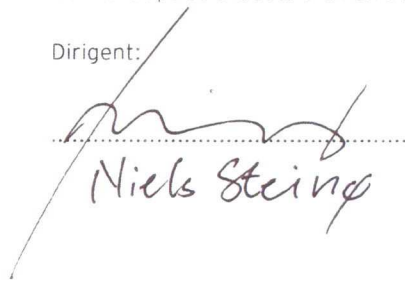 Dirigent:
Niels Steinø